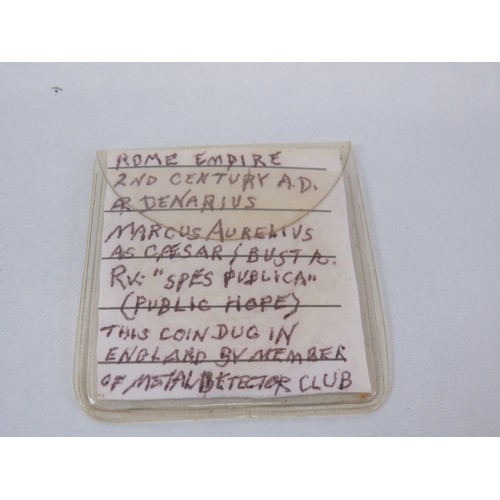 ROME EMPIRE
2ND CENTURY A.D.
AR DENARIUS
MARCUS AURELIUS
AS CÆSAR; BUST R.
RV: "SPES PUBLICA"
(PUBLIC HOPE)
THIS COIN DUG IN
ENGLAND BY MEMBER
OF METAL DETECTOR CLUB